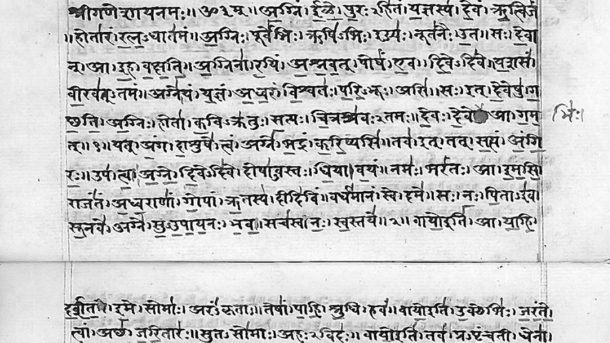 श्रीगणेशायनमः॥ॐ३म्॥ अग्निं। ईळे। पुरःऽहितं। यज्ञस्य। देवं। ऋत्विजं
।होतारं। रत्नऽधातमं॥ अग्निः। पूर्वेभिः। ऋषिऽभिः। ईड्यः। नूतनैः। उत। सः। देवा
न्। आ। इह। वक्षति॥ अग्निना। रयिं। अश्नवत्। पोषं। एव। दिवेऽदिवे। यशसं।
वीरवत्ऽतमं॥ अग्ने। यं। यज्ञं। अध्वरं। विश्वतः। परिऽभूः। असि। सः। इत्। देवेषु। ग
च्छति॥ अग्निः। होता। कविऽक्रतुः। सत्यः। चित्रश्रवःऽतमः। देवः। देवे आ। गम भिः।
त्॥१॥ यत्। अंग। दाशुषे। त्वं। अग्ने। भद्रं। करिष्यसि। तव। इत्। तत्। सत्यं। अंगि
रः॥ उप। त्वा। अग्ने। दिवेऽदिवे। दोषाऽवस्तः। धिया। वयं। नमः। भरंतः। आ। इमसि॥
राजंतं। अध्वराणां। गोपां। ऋतस्य। दीदिविं। वर्धमानं। स्वे। दमे॥ सः। नः। पिताऽइव।
सूनवे। अग्ने। सुऽउपायनः। भव। सचस्व। नः। स्वस्तये॥२॥ वायो इति। आ। याहि।
दर्शत। इमे। सोमाः। अरंऽकृताः। तेषां। पाहि। श्रुधि। हवं॥ वायो इति। उक्थेभिः। जरंते।
त्वां। अच्छ। जरितारः। सुतऽसोमाः। अहःऽविदः॥ वायो इति। तव। प्रऽपृंचती। धेना।